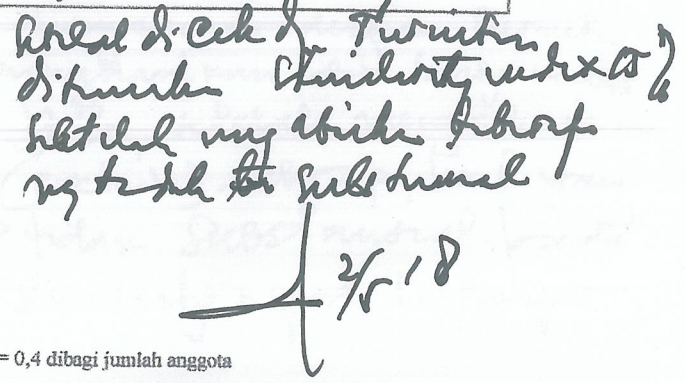 dicek dg Turnitin
ditemukan Similarity index 15 %
Setelah mengabaikan beberapa
yg tidak substansial
2/5 '18
= 0,4 dibagi jumlah anggota